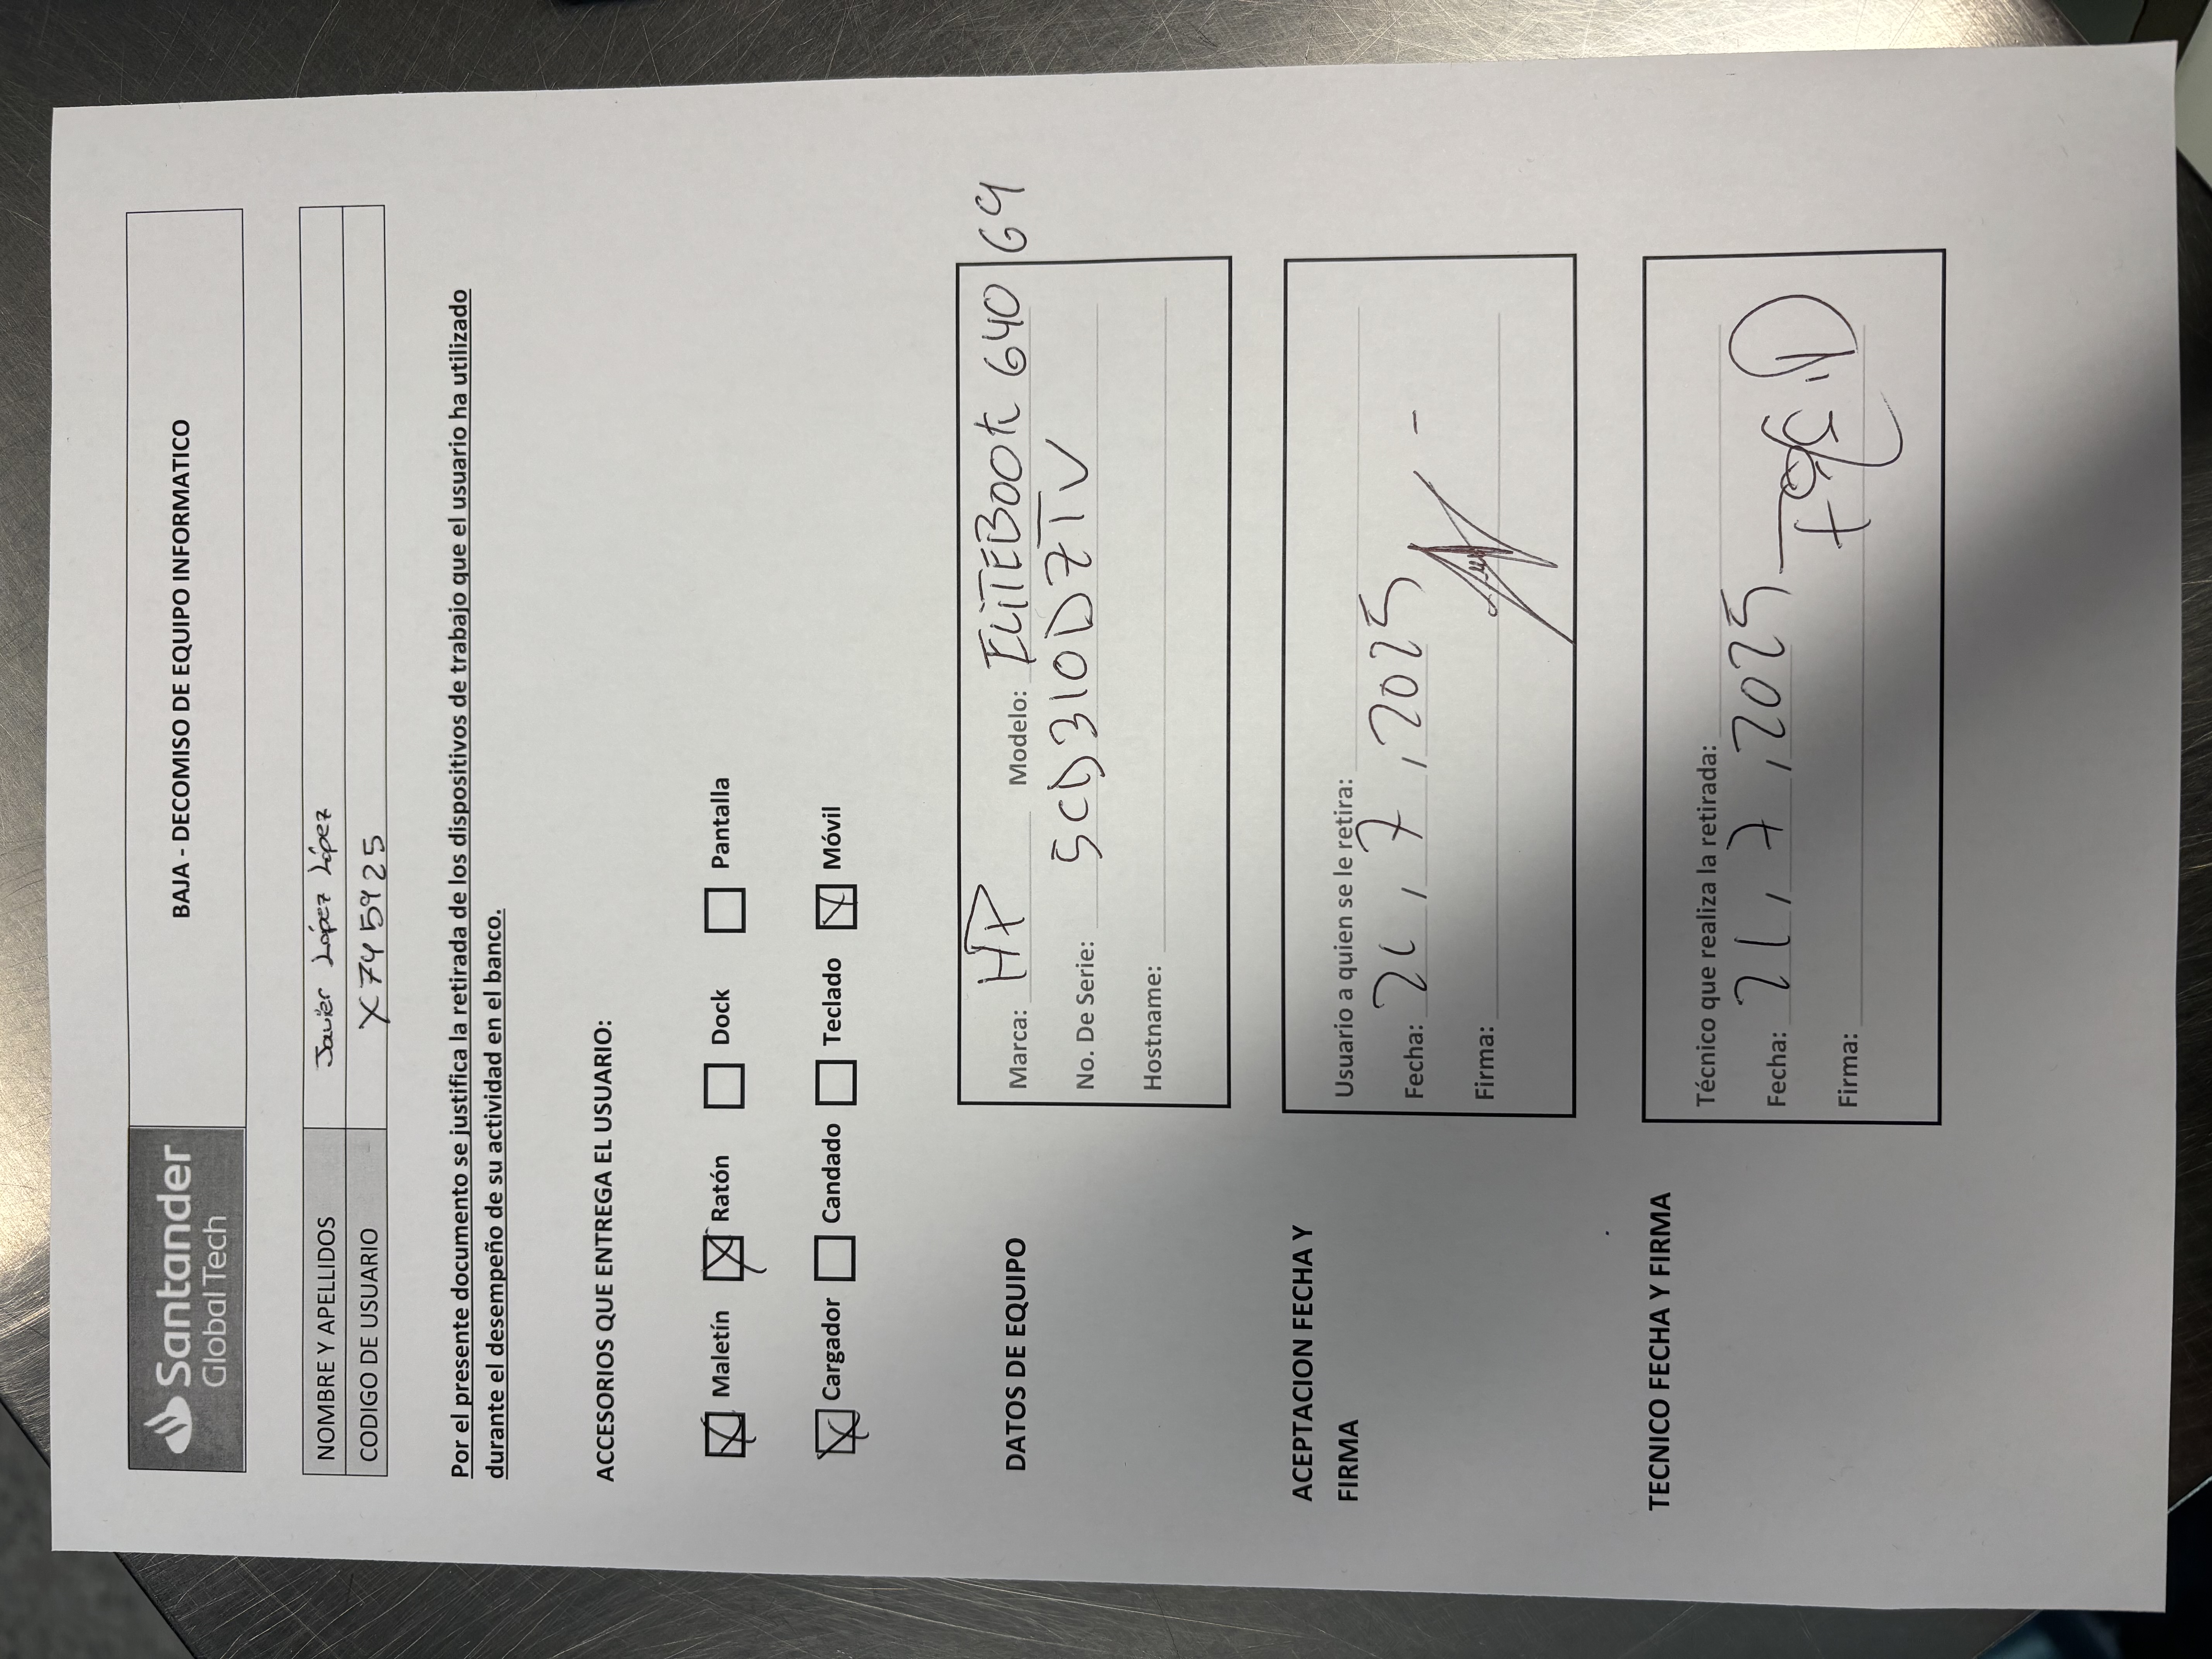 Santander
Global Tech
BAJA - DECOMISO DE EQUIPO INFORMATICO
NOMBRE Y APELLIDOS Javier López López
CODIGO DE USUARIO X745925
Por el presente documento se justifica la retirada de los dispositivos de trabajo que el usuario ha utilizado
durante el desempeño de su actividad en el banco.
ACCESORIOS QUE ENTREGA EL USUARIO:
Maletín Ratón Dock Pantalla
Cargador Candado Teclado Móvil
DATOS DE EQUIPO
Marca: HP Modelo: ELITEBOOK 640 G9
No. De Serie: 5CD310DZTV
Hostname:
ACEPTACION FECHA Y
FIRMA
Usuario a quien se le retira:
Fecha: 21, 7, 2025
Firma:
TECNICO FECHA Y FIRMA
Técnico que realiza la retirada:
Fecha: 21, 7, 2025
Firma: